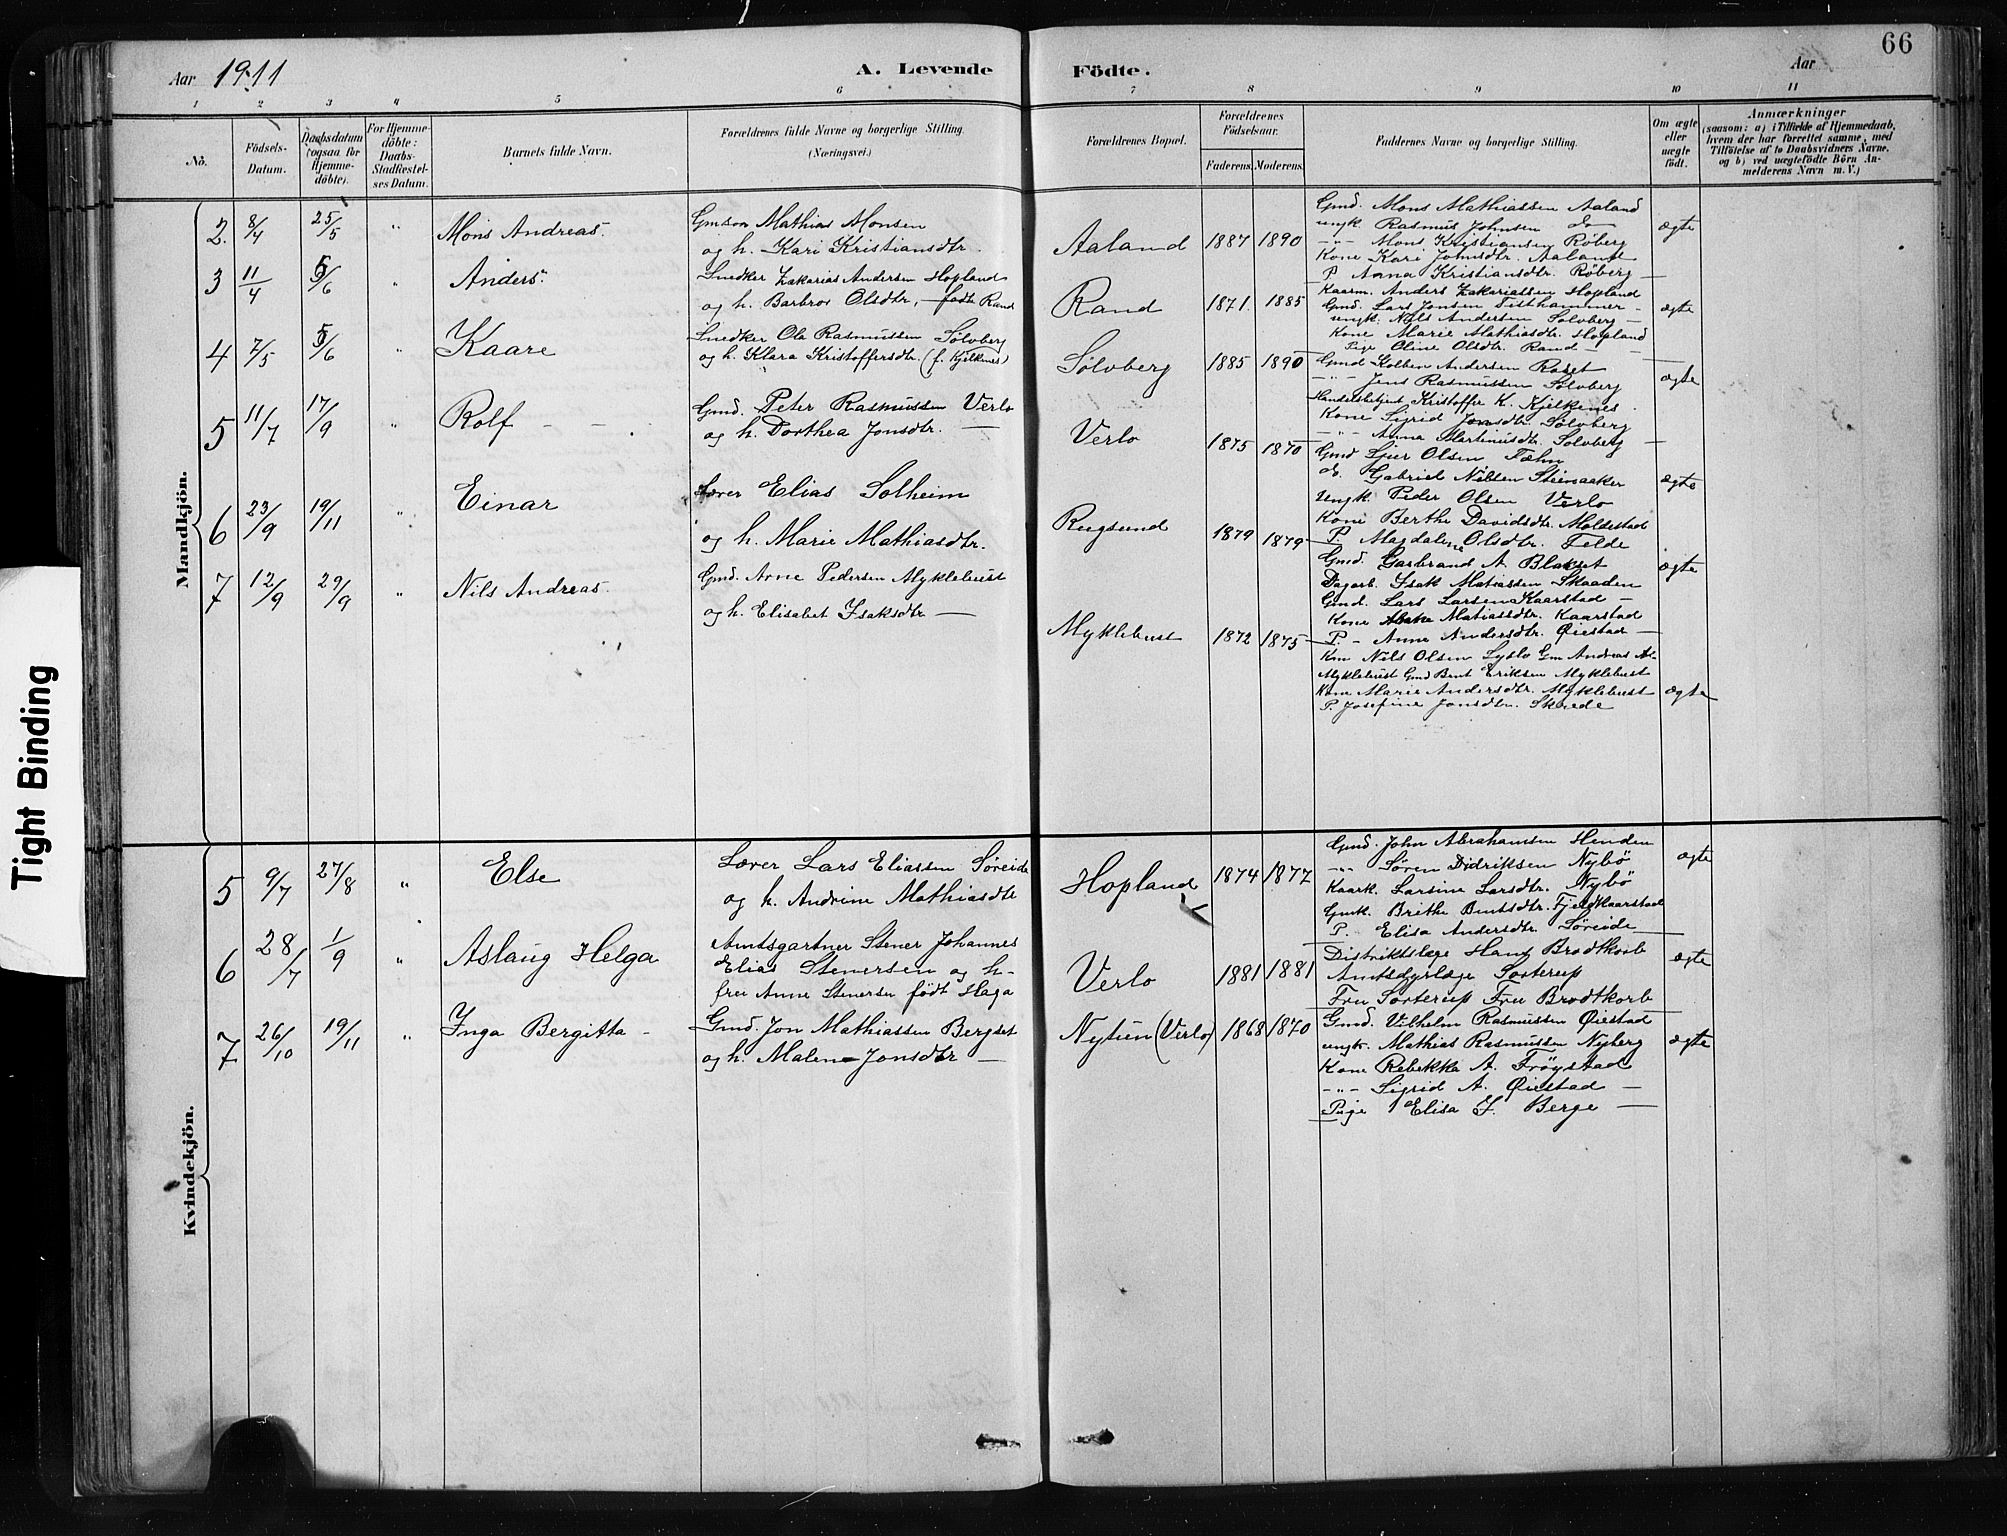 66
Aar 1911
A. Levende Födte.
Aar
1 2 3 4 5 6 7 8 9 10 11
No.
Födsels-Datum.
Daabsdatum (ogsaa for Hjemmedöbte).
For Hjemmedöbte: Daabs-Stadfæstelses Datum.
Barnets fulde Navn.
Forældrenes fulde Navne og borgerlige Stilling. (Næringsvei.)
Forældrenes Bopæl.
Forældrenes Födselsaar.
Faderens. Moderens.
Faddernes Navne og borgerlige Stilling.
Om ægte eller uægte födt.
Anmærkninger
(saasom: a) i Tilfælde af Hjemmedaab, hvem der har forrettet samme, med Tilföielse af to Daabsvidners Navne, og b) ved uægtefödte Börn Anmelderens Navn m. V.)
Mandkjön.
2. 8/4 25/5 " Mons Andreas.
Gmson Mathias Monsen
og h. Kari Kristiansdtr.
Aaland 1887 1890
Gmd. Mons Mathiassen Aaland
ungk. Rasmus Johnsen do
-"- Mons Kristiansen Röberg
Kone Kari Johnsdtr. Aaland
P. Anna Kristiansdtr. Röberg —
ægte
3 11/4 5/6 " Anders.
Snedker Zakarias Andersen Hopland
og h. Barbro Olsdtr, — födt Rand
Rand 1871. 1885
Kaarm. Anders Zakariassen Hopland
Gmd. Lars Jonsen Tisthammer -
ungk. Nils Andersen Solvberg —
Kone Marie Mathiasdtr. Hopland
Pige Oline Olsdtr. Rand —
ægte
4 7/5 5/6 " Kaare
Snedker Ola Rasmussen Sølvberg
og h. Klara Kristoffersdtr. (f. Kjelkenes)
Sølvberg 1885 1890
Gmd Kolben Andersen Roset
-"- Jens Rasmussen Sølvberg
Handelsbetjent Kristoffer K. Kjelkenes.
Kone Sigrid Jonsdtr. Sölvberg
-"- Anna Martinusdtr. Sölvberg —
ægte
5 11/7 17/9 " Rolf - -
Gmd. Peter Rasmussen Verlo
og h. Dorthea Jonsdtr. —
Verlo 1875 1870
Gmd Sjur Olsen Fæhn
do. Gabriel Nilsen Steinsaker
Ungk. Peder Olsen Verlo
Kone Berthe Davidsdtr. Moldestad
P. Magdalene Olsdtr. Felde
ægte
6 23/9 19/11 " Einar
Lærer Elias Solheim
og h. Marie Mathiasdtr.
Rugsund 1879 1879
Gmd. Gasbrand A. Blakset
Dagarb. Isak Matiassen Skaaden
Gmd. Lars Larsen Kaarstad —
Kone Matiassdtr. Kaarstad
P. - Anne Andersdtr. Øiestad —
ægte
7 12/9 29/9 " Nils Andreas.
Gmd. Arne Pedersen Myklebust
og h. Elisabet Isaksdtr —
Myklebust 1872 1875
Km Nils Olsen Lyslo Gm Andreas A-
Myklebust Gmd Bent Eriksen Myklebust
Kone Marie Andersdtr. Myklebust
P. Josefine Jonsdtr. Skrede
ægte
Kvindekjön.
5 9/7 27/8 " Else
Lærer Lars Eliassen Søreide
og h. Andrine Mathiasdtr
Hopland 1874 1877
Gmd. John Abrahamsen Henden
-"- Søren Didriksen Nybö
Kaark. Larsine Larsdtr. Nybö
Gmk. Brithe Bentsdtr. Fjeldkaarstad
P. Elisa Andersdtr. Söreide
ægte
6 28/7 1/9 " Aslaug Helga
Amtsgartner Stener Johannes
Elias Stenersen og h-
fru Anne Stenersen født Haga
Verlo 1881 1881
Distriktslæge Hans Brodtkorb
Amtsdyrlæge Sorterup
Fru Sorterup Fru Brodtkorb
ægte
7 26/10 19/11 " Inga Bergitta -
Gmd. Jon Mathiassen Bergset
og h. Malene Jonsdtr —
Nytun (Verlo) 1868 1870
Gmd. Vilhelm Rasmussen Øiestad
ungk. Mathias Rasmussen Nyberg
Kone Rebekka A. Fröystad
-"- Sigrid A. Øiestad —
Pige Elisa J. Berge —
ægte
Tight Binding